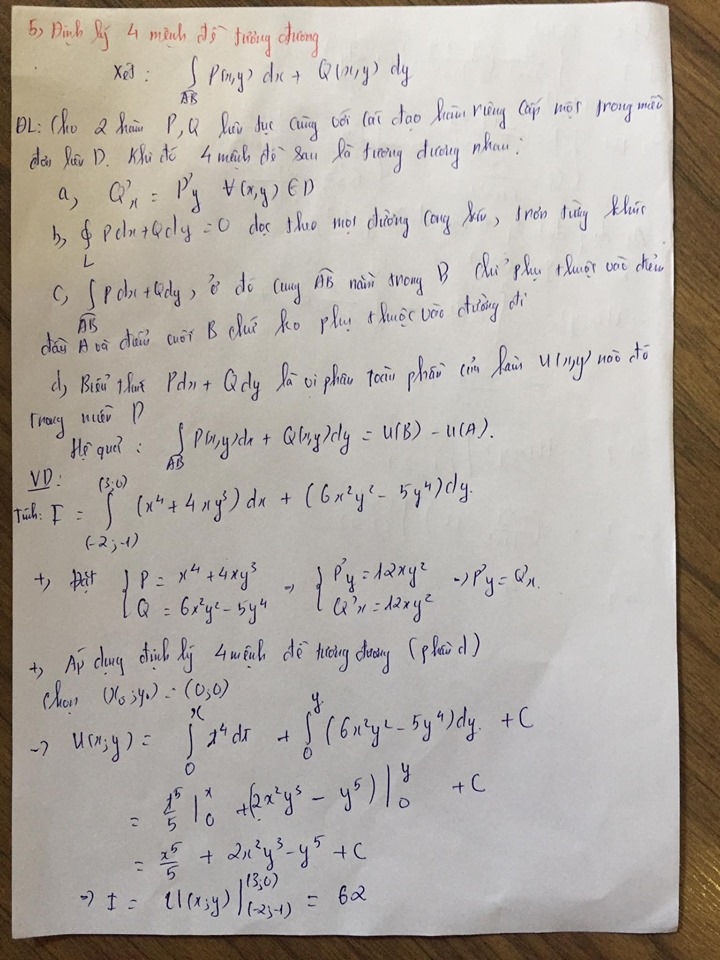 5, Định lý 4 mệnh đề tương đương
Xét: ∫_{AB} P(x,y) dx + Q(x,y) dy
ĐL: Cho 2 hàm P, Q liên tục cùng với các đạo hàm riêng cấp một trong miền
đơn liên D. Khi đó 4 mệnh đề sau là tương đương nhau:
a, Q'x = P'y ∀(x,y) ∈ D
b, ∮_L Pdx + Qdy = 0 dọc theo mọi đường cong kín, trơn từng khúc
c, ∫_{AB} Pdx + Qdy, ở đó cung AB nằm trong D chỉ phụ thuộc vào điểm
đầu A và điểm cuối B chứ ko phụ thuộc vào đường đi
d, Biểu thức Pdx + Qdy là vi phân toàn phần của hàm U(x,y) nào đó
trong miền D
Hệ quả: ∫_{AB} P(x,y)dx + Q(x,y)dy = U(B) - U(A).
VD:
Tính: I = ∫_{(-2;-1)}^{(3;0)} (x⁴ + 4xy³) dx + (6x²y² - 5y⁴)dy.
+, Đặt { P = x⁴ + 4xy³ ; Q = 6x²y² - 5y⁴ → { P'y = 12xy² ; Q'x = 12xy² → P'y = Q'x.
+, Áp dụng định lý 4 mệnh đề tương đương (phần d)
Chọn (x₀;y₀) = (0;0)
→ U(x;y) = ∫_0^x t⁴dt + ∫_0^y (6x²y² - 5y⁴)dy + C
= t⁵/5 |_0^x + (2x²y³ - y⁵) |_0^y + C
= x⁵/5 + 2x²y³ - y⁵ + C
→ I = U(x;y) |_{(-2;-1)}^{(3;0)} = 62